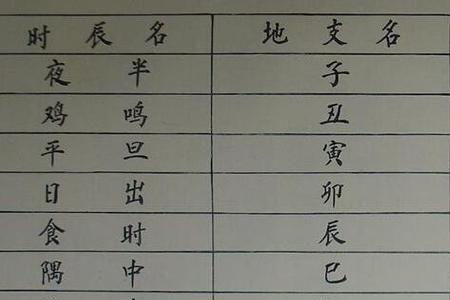 时辰名 地支名
夜半 子
鸡鸣 丑
平旦 寅
日出 卯
食时 辰
隅中 巳